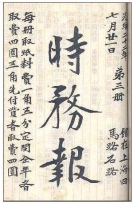 七月廿一日
第三冊
上海四
馬路石路
時務報
每冊取紙料費一角五分定閱全年者
取費四圓三角先付貲者取費四圓